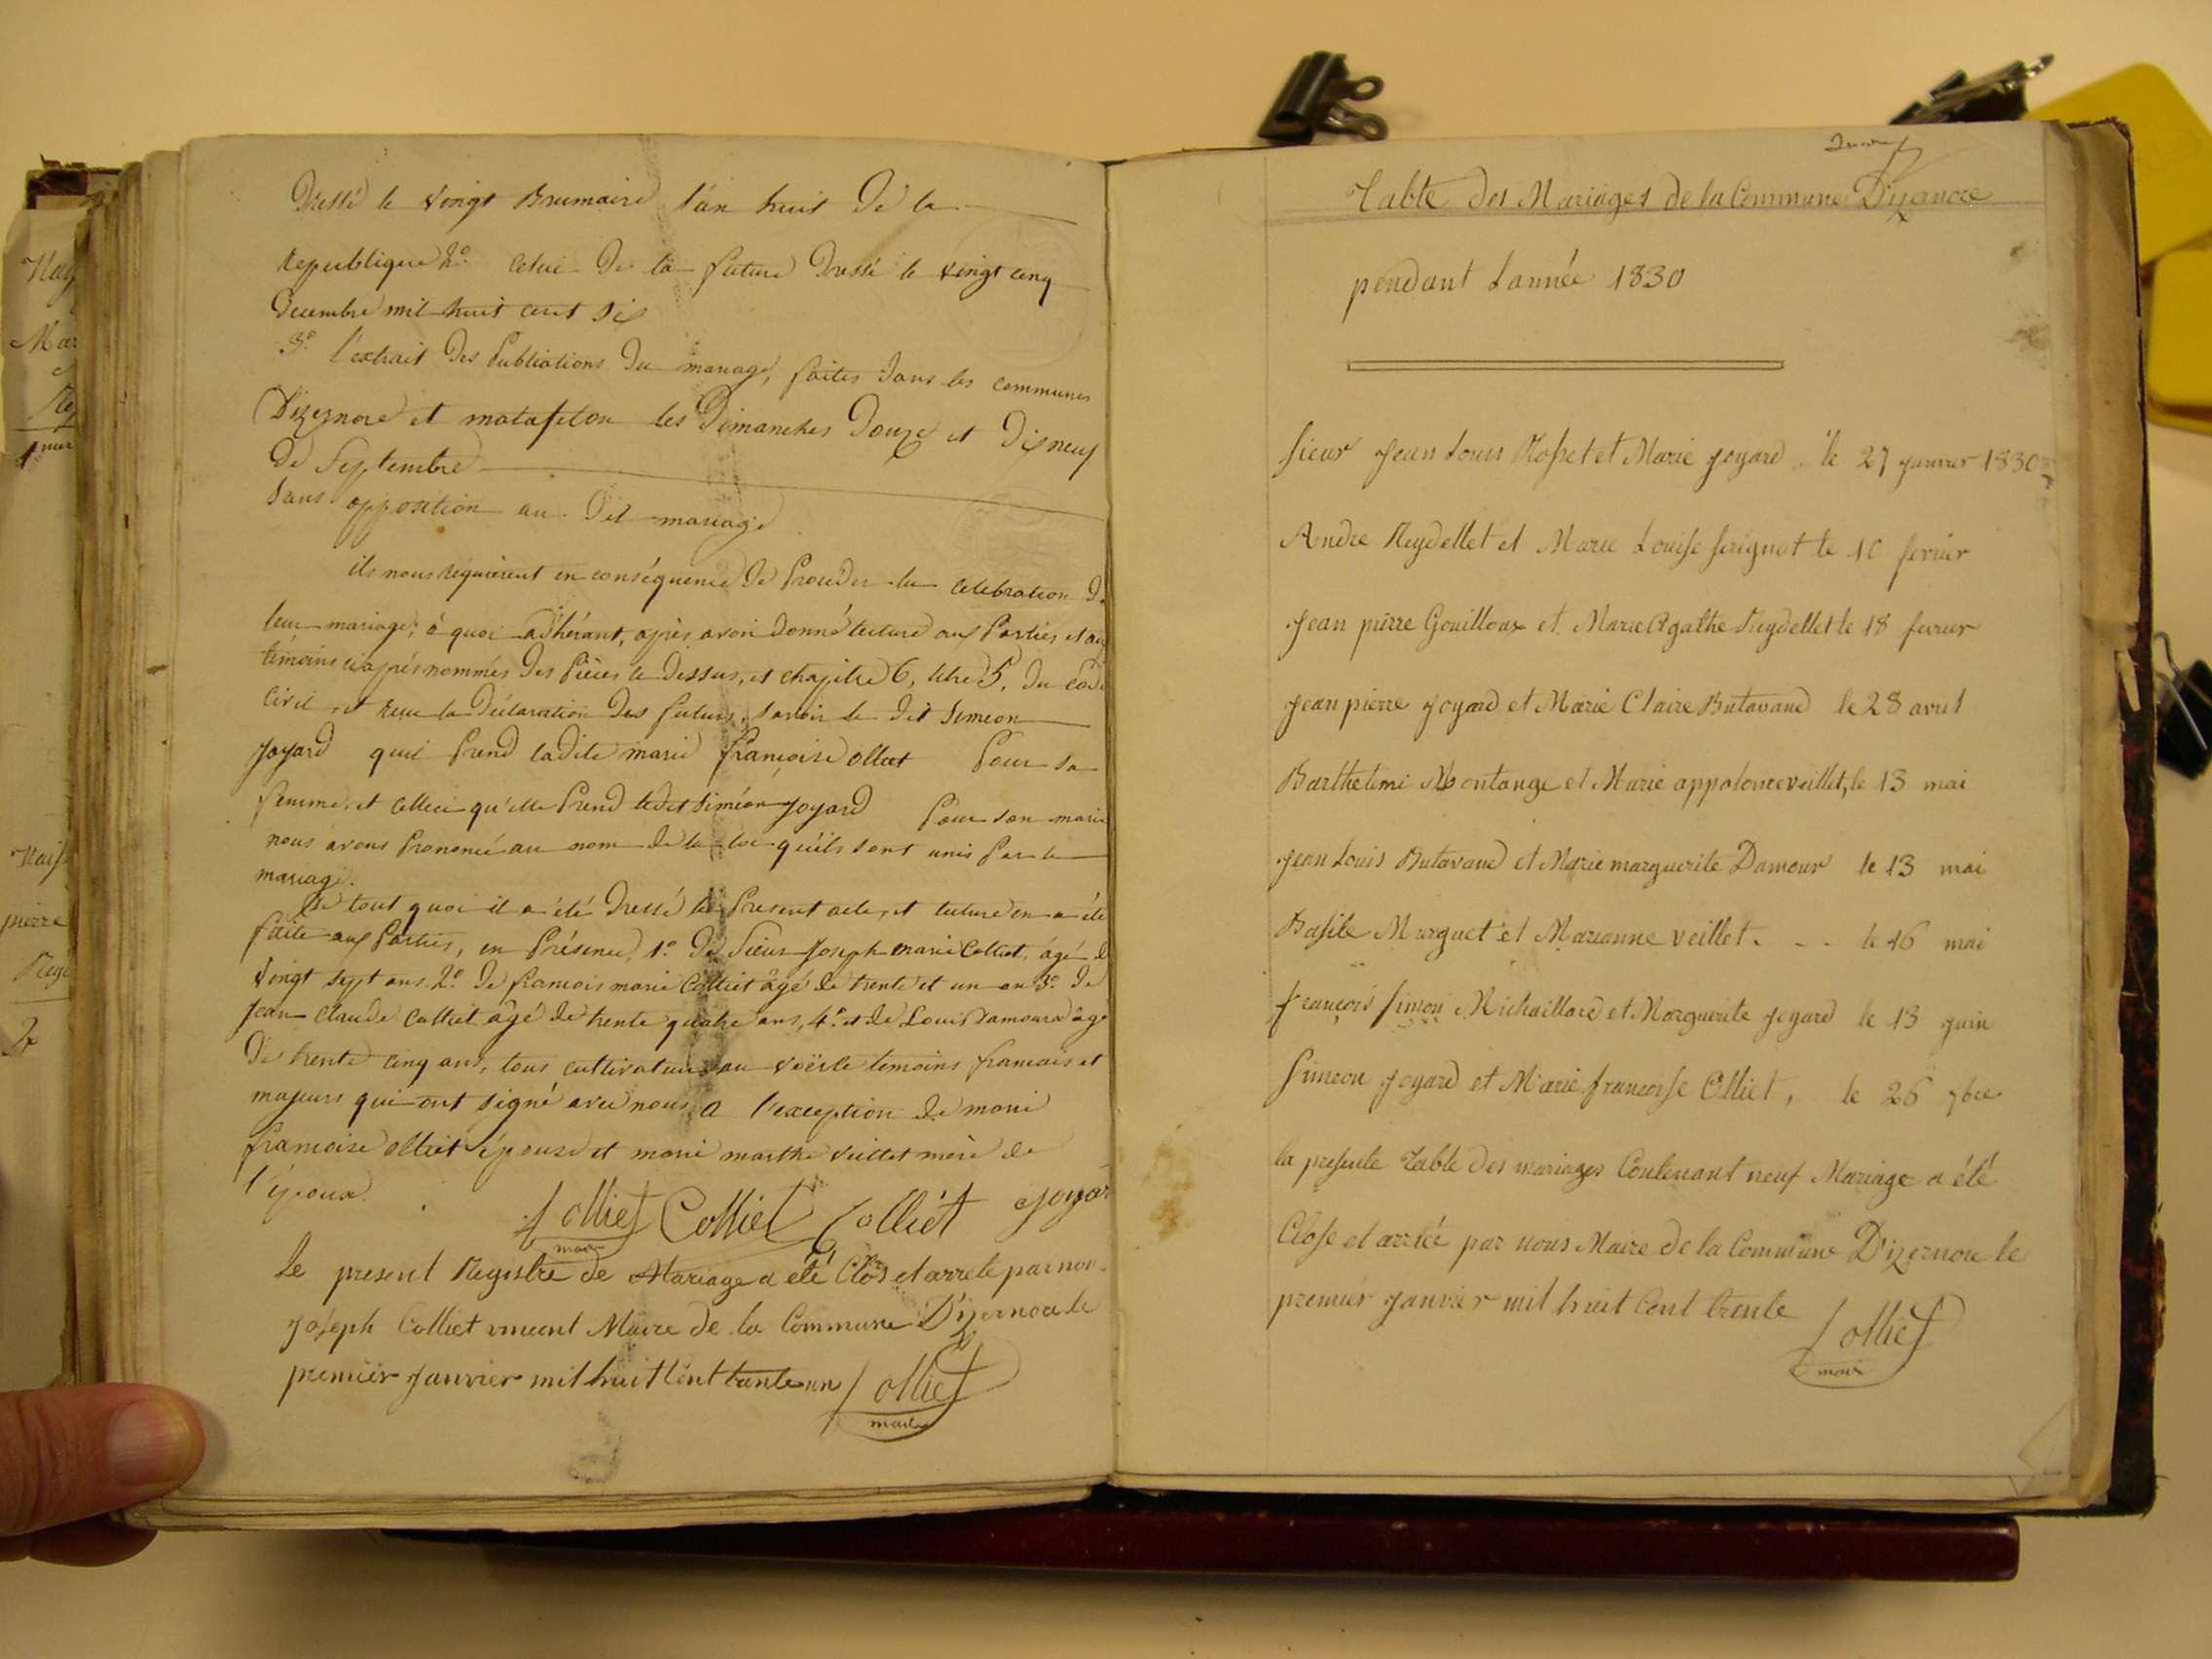 Dressé le vingt Brumaire l'an huit De la
Republique 2º celui De la future Dressé le vingt cinq
Decembre mil huit cent six
3º l'extrait Des Publications Du mariage, faites dans les communes
D'izernore et matafelon les Dimanches Douze et Dixneuf
De Septembre
Sans opposition au Dit mariage
ils nous requièrent en conséquence De Proceder la celebration D
leur mariage; à quoi adhérant, après avoir Donné lecture aux Parties et aux
témoins ciaprés nommés Des Pièces ci Dessus, et chapitre 6, titre 5, Du code
civil, et reçu la Déclaration Des futurs, savoir le dit Simeon
Joyard quil Prend ladite marie françoise olliet Pour sa
femme, et celleci qu'elle Prend ledit Siméon Joyard Pour son mari
nous avons Prononcé au nom De la loi qu'ils sont unis Par le
mariage.
De tout quoi il a été Dressé le Present acte, et lecture en a été
faite aux Parties, en Présence, 1º De Sieur Joseph marie Colliet, âgé de
vingt sept ans 2º De francois marie Colliet âgé De trente et un an 3º De
Jean Claude Colliet âgé De trente quatre ans, 4º et de Louis Damour âgé
De trente cinq ans, tous cultivateurs au voërle temoins francais et
majeurs qui ont signé avec nous a l'exception De marie
francoise olliet épouse et marie marthe Veillet mère de
l'époux.
Colliet Colliet Colliet Joyar
maire
Le present Registre de Mariage a été Clos et arreté par nou
Joseph Colliet vincent Maire de la Commune D'izernore le
premier Janvier mil huit Cent trente un Colliet
maire
Table des Mariages de la Commune D'izernore
pendant L'année 1830
Sieur Jean Louis Rosset et Marie Joyard le 27 janvier 1830
Andre Reydellet et Marie Louise serignet le 10 fevrier
Jean pierre Gouilloux et Marie Agathe Reydellet le 18 fevrier
Jean pierre Joyard et Marie Claire Butavand le 28 avril
Barthelemi Montange et Marie appolonie veillet, le 13 mai
Jean Louis Butavand et Marie marguerite Damour le 13 mai
Basile Murguet et Marianne veillet. - - le 16 mai
françois simon Michaillard et Marguerite Joyard le 13 Juin
Simeon Joyard et Marie francoise Olliet, le 26 7bre
la presente Table des mariages Contenant neuf Mariage a été
Close et arreté par nous Maire de la Commune D'izernore le
premier Janvier mil huit Cent trente Colliet
maire
Nais
pierre
Mar
1mer
2